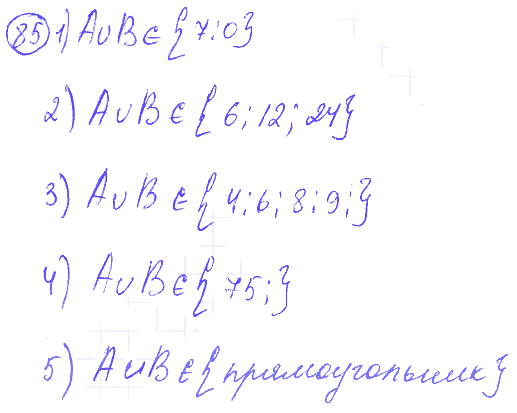 85 1) A∪B ∈ {7;0}
2) A∪B ∈ {6;12;24}
3) A∪B ∈ {4;6;8;9;}
4) A∪B ∈ {75;}
5) A∪B ∈ {прямоугольник}